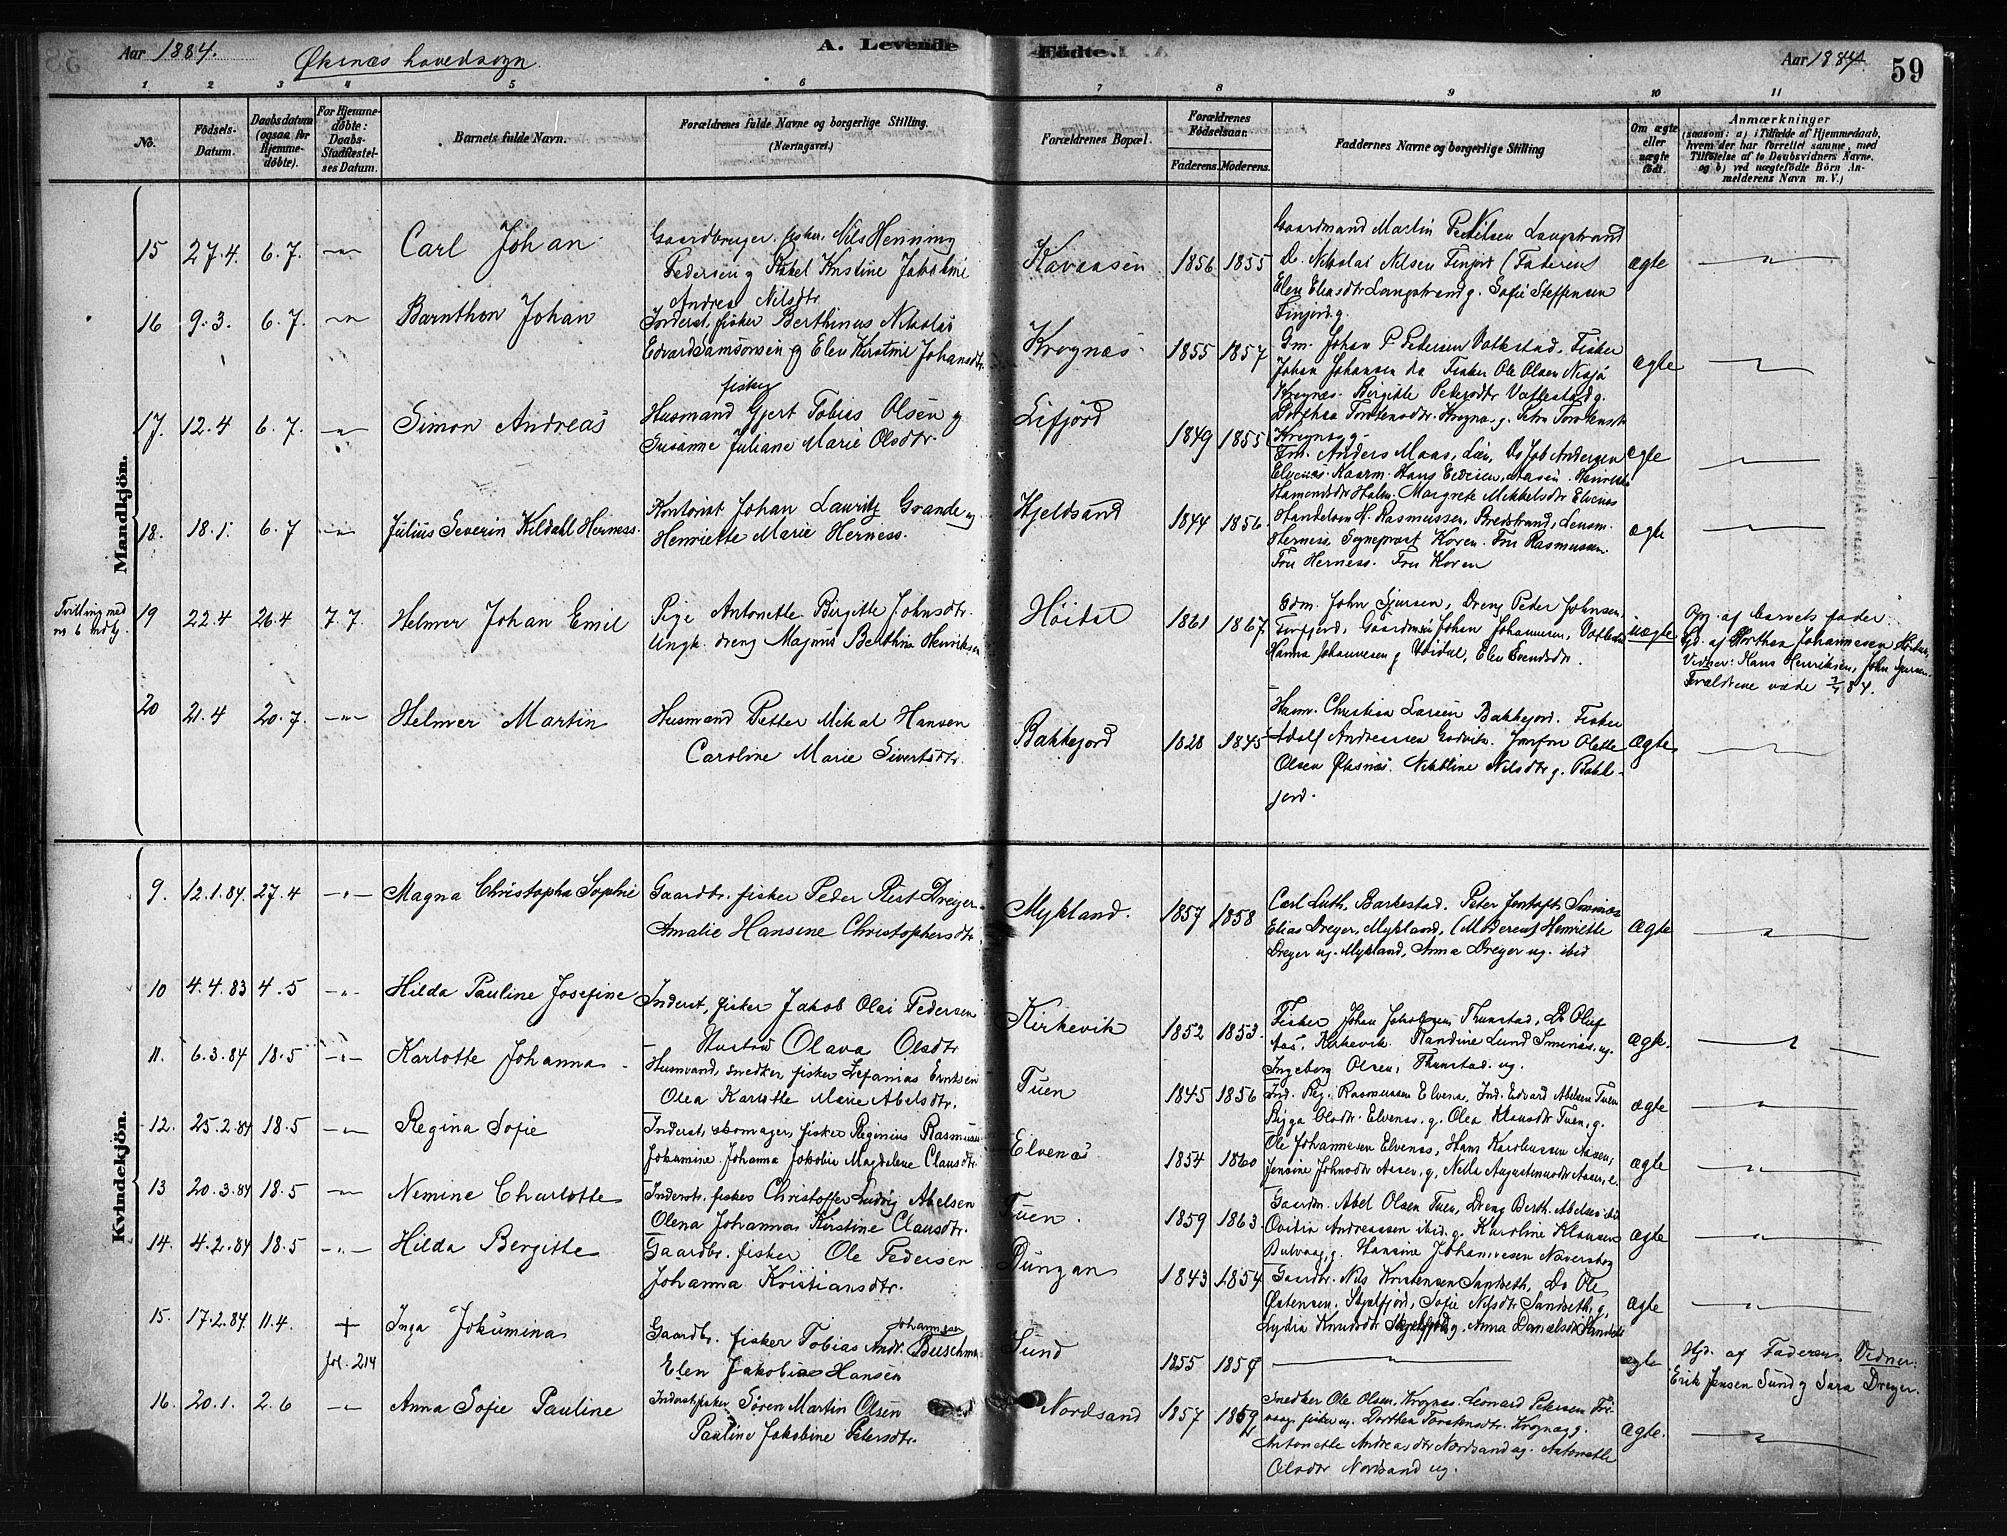 Aar 1884. Øksnæs hovedsogn. A. Levende Födte. Aar 1884. 59
1 2 3 4 5 6 7 8 9 10 11
No.
Födsels-Datum.
Daabsdatum (ogsaa for Hjemme-döbte).
For Hjemme-döbte: Daabs-Stadfæstel-ses Datum.
Barnets fulde Navn.
Forældrenes fulde Navne og borgerlige Stilling. (Næringsvei.)
Forældrenes Bopæl.
Forældrenes Födselsaar.
Faderens. Moderens.
Faddernes Navne og borgerlige Stilling
Om ægte eller uægte födt.
Anmærkninger
(saasom: a) i Tilfælde af Hjemmedaab,
hvem der har forrettet samme, med
Tilföielse af to Daabsvidners Navne.
og b) ved uægtefödte Börn An-
melderens Navn m. V.)
Mandkjön.
15 27.4. 6.7. Carl Johan
Gaardbruger, fisker, Nils Henning
Pedersen og Kristine
Andrea Nilsdtr
1856 1855
Gaardmand Martin Langstrand
Nikolai Nilsen Finjord (Faderen)
Elen Eliasdtr Langstrand g. Sofie Steffensen
Finjord g.
ægte
16 9.3. 6.7. Barnthon Johan
Inderst, fisker Berthinus Nikolai
Edvard Samsonsen og Elen Kirstine Johansdtr.
Krognæs.
1855 1857
Gm. Johan P. Pedersen Vottestad. Fisker
Johan Johansen Fisker Ole Olsen
Krognæs. Birgitte Pedersdtr Vottestad g.
Dorthea Torstensdtr. Krognæs g. Petra
Krognæs g.
ægte
17. 12.4 6.7. Simon Andreas
fisker
Husmand Gjert Tobias Olsen og
Susanne Juliane Marie Olsdtr.
Lifjord
1849 1855
Anders Maas, Job Andersen
Elvenæs. Hans
Margrete Mikkelsdtr Elvenes
ægte
18. 18.1. 6.7 Julius Severin Kildahl Herness.
Kontorist Johan Lauritz Grande og
Henriette Marie Herness.
Hjeldsand
1844 1856
Handelsm H. Rasmussen, Bredstrand, Lensm.
Herness, Sognepræst Koren. Fru Rasmussen.
Fru Herness. Fru Koren
ægte
Tvilling med no 6 Indtg.
19 22.4 26.4 7.7. Helmer Johan Emil
Pige Antonette Birgitte Johnsdtr.
Ungk. dreng Magnus Berthinus Henriksen
Höidal
1861 1867
Gdm. John Sjursen, Dreng Peder Johnsen,
Finfjord, Gaardmand Johan Johannesen,
Hanna Johannesen g Höidal, Elen Svendsdtr.
uægte
Opg. af barnets fader.
Hjd. af Dorthea Johannesen
Vidner: Hans Henriksen, John Sjursen.
Forældrene 84.
20 21.4 20.7. Helmer Martin
Husmand Petter Mikal Hansen
Caroline Marie Sivertsdtr.
Bakkejord
1828 1845
Husm. Christian Larsen Bakkejord. Fisker
Adolf Andreassen Jomfru Olette
Olsen Öksnæs. Nikoline Nilsdtr g. Bakke-
jord.
ægte
Kvindekjön.
9. 12.1.84. 27.4 Magna Christopha Sophie
Gaardbr. fisker Peder Rist Dreyer
Amalie Hansine Christophersdtr.
Mykland.
1857 1858
Carl Luth, Barkestad. Peter Jentoft Sminæs
Elias Dreyer, Mykland, (Moderen) Henriette
Dreyer ug. Mykland, Anna Dreyer ug. ibid
ægte
10 4.4.83 4.5 Hilda Pauline Josefine
Inderst, fisker Jakob Olai Pedersen
Hustru Olava Olsdtr
Kirkevik
1852 1853.
Fisker Johan Jakobsen, Thunstad, Do Oluf
Aas, Kirkevik. Randine Lund Sminæs. ug.
Ingeborg Olsen, Thunstad. ug.
ægte.
11. 6.3.84 18.5 Karlotte Johanna
Husmand, snedker fisker Zefanias Erntsen
Olea Karlotte Marie Abelsdtr.
Tuen
1845 1856
Ind. Reg. Rasmussen Elvenæs, Ind. Edvard Abelsen Tuen
Olsdtr. Elvenæs. g. Olea Klausdtr Tuen, g.
ægte
12. 25.2.84 18.5 Regina Sofie
Inderst, skomager, fisker Reginius Rasmussen
Johanna Jakobie Magdalene Clausdtr.
Elvenæs
1854 1860
Ole Johannesen Elvenæs, Hans Karoliussen Aasen,
Jensine Johnsdtr Aasen, g, Nella Augustinusdtr Aasen, e.
ægte
13 20.3.84 18.5 Nemine Charlotte
Inderst. fisker Christoffer Ludvig Abelsen
Olena Johanna Kirstine Clausdtr.
Tuen.
1859 1863.
Gaardm. Abel Olsen Tuen, Dreng Berth. Abelsen ibid
Ovidia Andreassen ibid. g. Karoline Klausen
Hansine Johannesen
ægte
14. 4.2.84 18.5 Hilda Bergitte
Gaardbr. fisker Ole Pedersen
Johanna Kristiansdtr.
Dungan
1843 1854
Gaardbr. Nils Kristensen Sandseth, Do Ole
Östensen, Skjelfjord, Sofie Nilsdtr Sandseth, g,
Lydia Knudsdtr Skjelfjord g. Anna Danielsdtr
ægte
15. 17.2.84. 11.4. + fol. 214 Inga Jokumina
Johannesen
Gaardbr. fisker Tobias Andr. Buschman
Elen Jakobia Hansen
Sund
1855 1859
ægte
Hjd. af Faderen. Vidner:
Erik Jensen Sund g Sara Dreyer.
16. 20.1. 2.6 Anna Sofie Pauline
Inderst fisker Sören Martin Olsen
Pauline Jakobine Petersdtr.
Nordsand
1857 1862
Snedker Ole Olsen, Krognæs. Leonard Petersen
fisker ug. Dorthea Torstensdtr. Krognæs g.
Antonette Andreasdtr Nordsand ug. Antonette
Olsdtr Nordsand ug.
ægte.